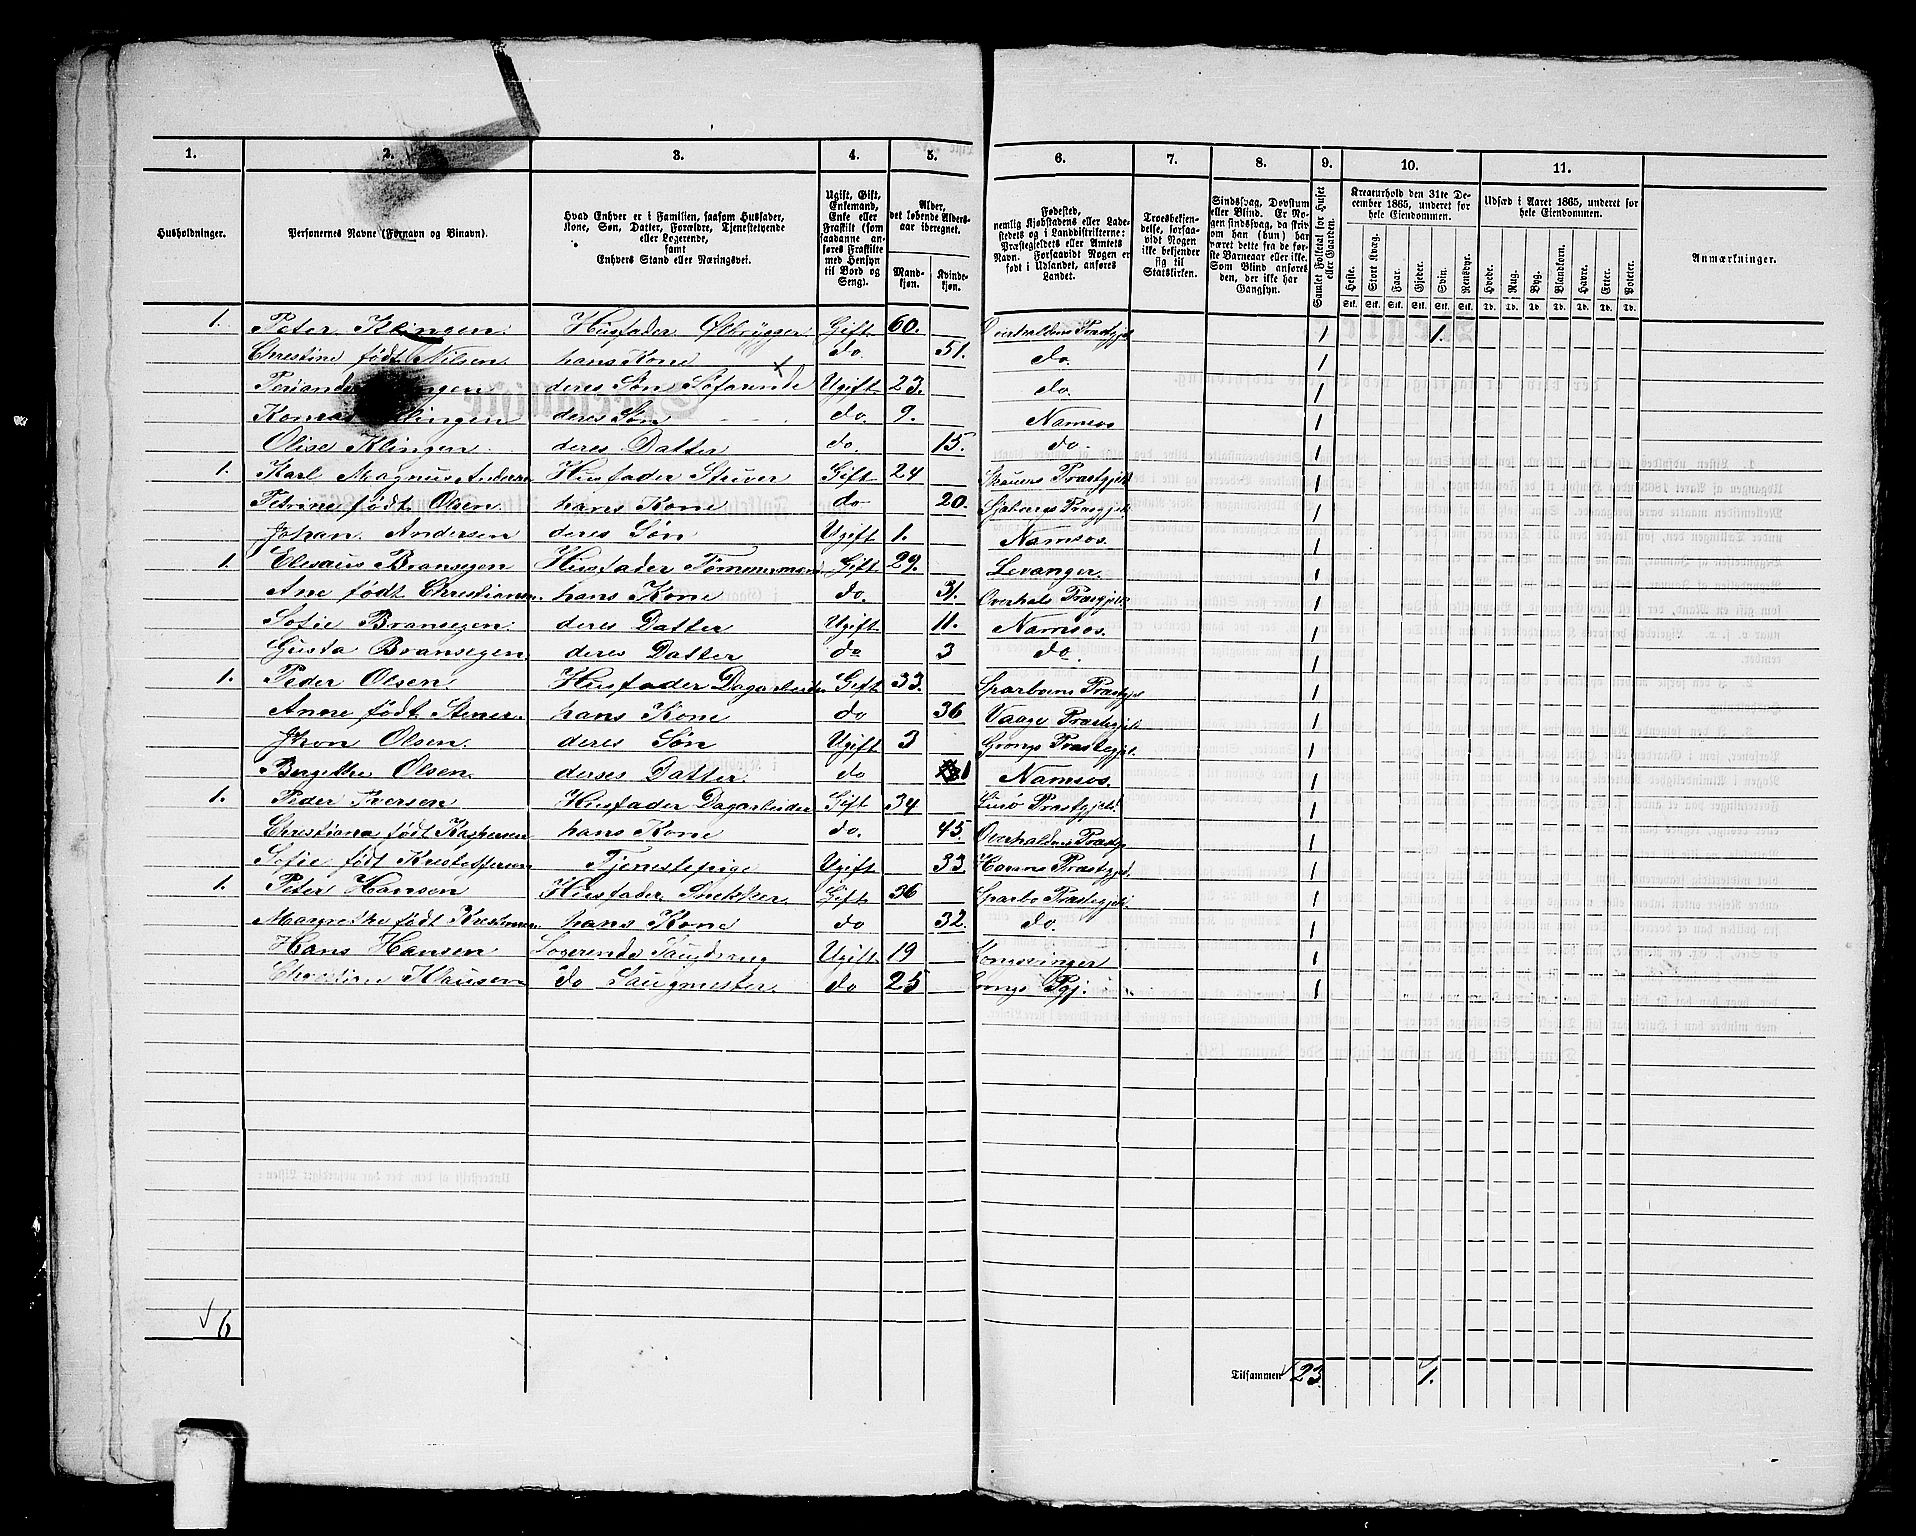 1. 2. 3. 4. 5. 6. 7. 8. 9. 10. 11.
Husholdninger.
Personernes Navne (Fornavn og Binavn).
Hvad Enhver er i Familien, saasom Husfader,
Kone, Søn, Datter, Forældre, Tjenestetyende
eller Logerende,
samt
Enhvers Stand eller Næringsvei.
Ugift, Gift,
Enkemand,
Enke eller
Fraskilt (som
saadanne an-
føres Fraskilte
med Hensyn
til Bord og
Seng).
Alder,
det løbende Alders-
aar iberegnet.
Mand-
kjøn.
Kvinde-
kjøn.
Fødested,
nemlig Kjøbstadens eller Lade-
stedets og i Landdistrikterne:
Præstegjeldets eller Amtets
Navn. Forsaavidt Nogen er
født i Udlandet, anføres
Landet.
Troesbekjen-
delse, forsaa-
vidt Nogen
ikke bekjender
sig til
Statskirken.
Sindssvag, Døvstum
eller Blind. Er No-
gen sindssvag, da skriv
om han (hun) har
været dette fra de før-
ste Barneaar eller ikke.
Som Blind anføres
den, der ikke har
Gangsyn.
Samlet Folketal for Huset
eller Gaarden.
Kreaturhold den 31te De-
cember 1865, underet for
hele Eiendommen.
Heste. Stort Kvæg. Faar. Gjeder. Svin. Rensdyr.
Stk. Stk. Stk. Stk. Stk. Stk.
Udsæd i Aaret 1865, underet for
hele Eiendommen.
Hvede. Rug. Byg. Blandkorn. Havre. Erter. Poteter.
Td. Td. Td. Td. Td. Td. Td.
Anmærkninger.
1. Peter Klingen. Husfader Ølbrygger Gift 60. Præstgjel 1 1.
Christine født Nilsen. hans Kone do. 51. do. 1
deres Søn Søfarende Ugift 23. do. 1
Klingen deres Søn do. 9. Namsos 1
Olise Klingen. deres Datter do. 15. do. 1
1. Karl Magnus Andersen Husfader Gift 24 Præstgjeld 1
Petrine født Olsen hans Kone do 20. Præsgjeld. 1
Johan. Andersen deres Søn Ugift 1. Namsos. 1
1. Elesaus Bransegen Husfader Tømmermand Gift 29. Levanger. 1
Ane født Christiansen. hans Kone do. 31. Overhals Præsgjeld. 1
Sofie Bransegen. deres Datter Ugift 11. Namsos. 1
Gusta Bransegen. deres Datter do 3 do. 1
1. Peder Olsen. Husfader Dagarbeider Gift 33. Præstgjel 1
Anne født Stener. hans Kone do 36 Vaage Præstegjel. 1
Jhon Olsen. deres Søn Ugift 3 Grongs Præstegjel. 1
Bergithe Olsen. derses Datter do 1 Namsos. 1
1. Peder Iversen Husfader Dagarbeider Gift 34 Præstgjeld. 1
Christiana født Kaspersen hans Kone do. 45. Overhaldens Præstgj 1
Sofie født Krestoffersen Tjenestepige Ugift 33. Præstgjel. 1
1. Peter Hansen Husfader Snekker Gift 36 Sparbo Præstegjeld. 1
Margrethe født hans Kone do 32. do. 1
Hans Hansen Logerende Ugift 19 Kongsvinger 1
Christian Klausen do Saugmester. do 25 Grongs Pgj. 1
6
Tilsammen 23. 1.